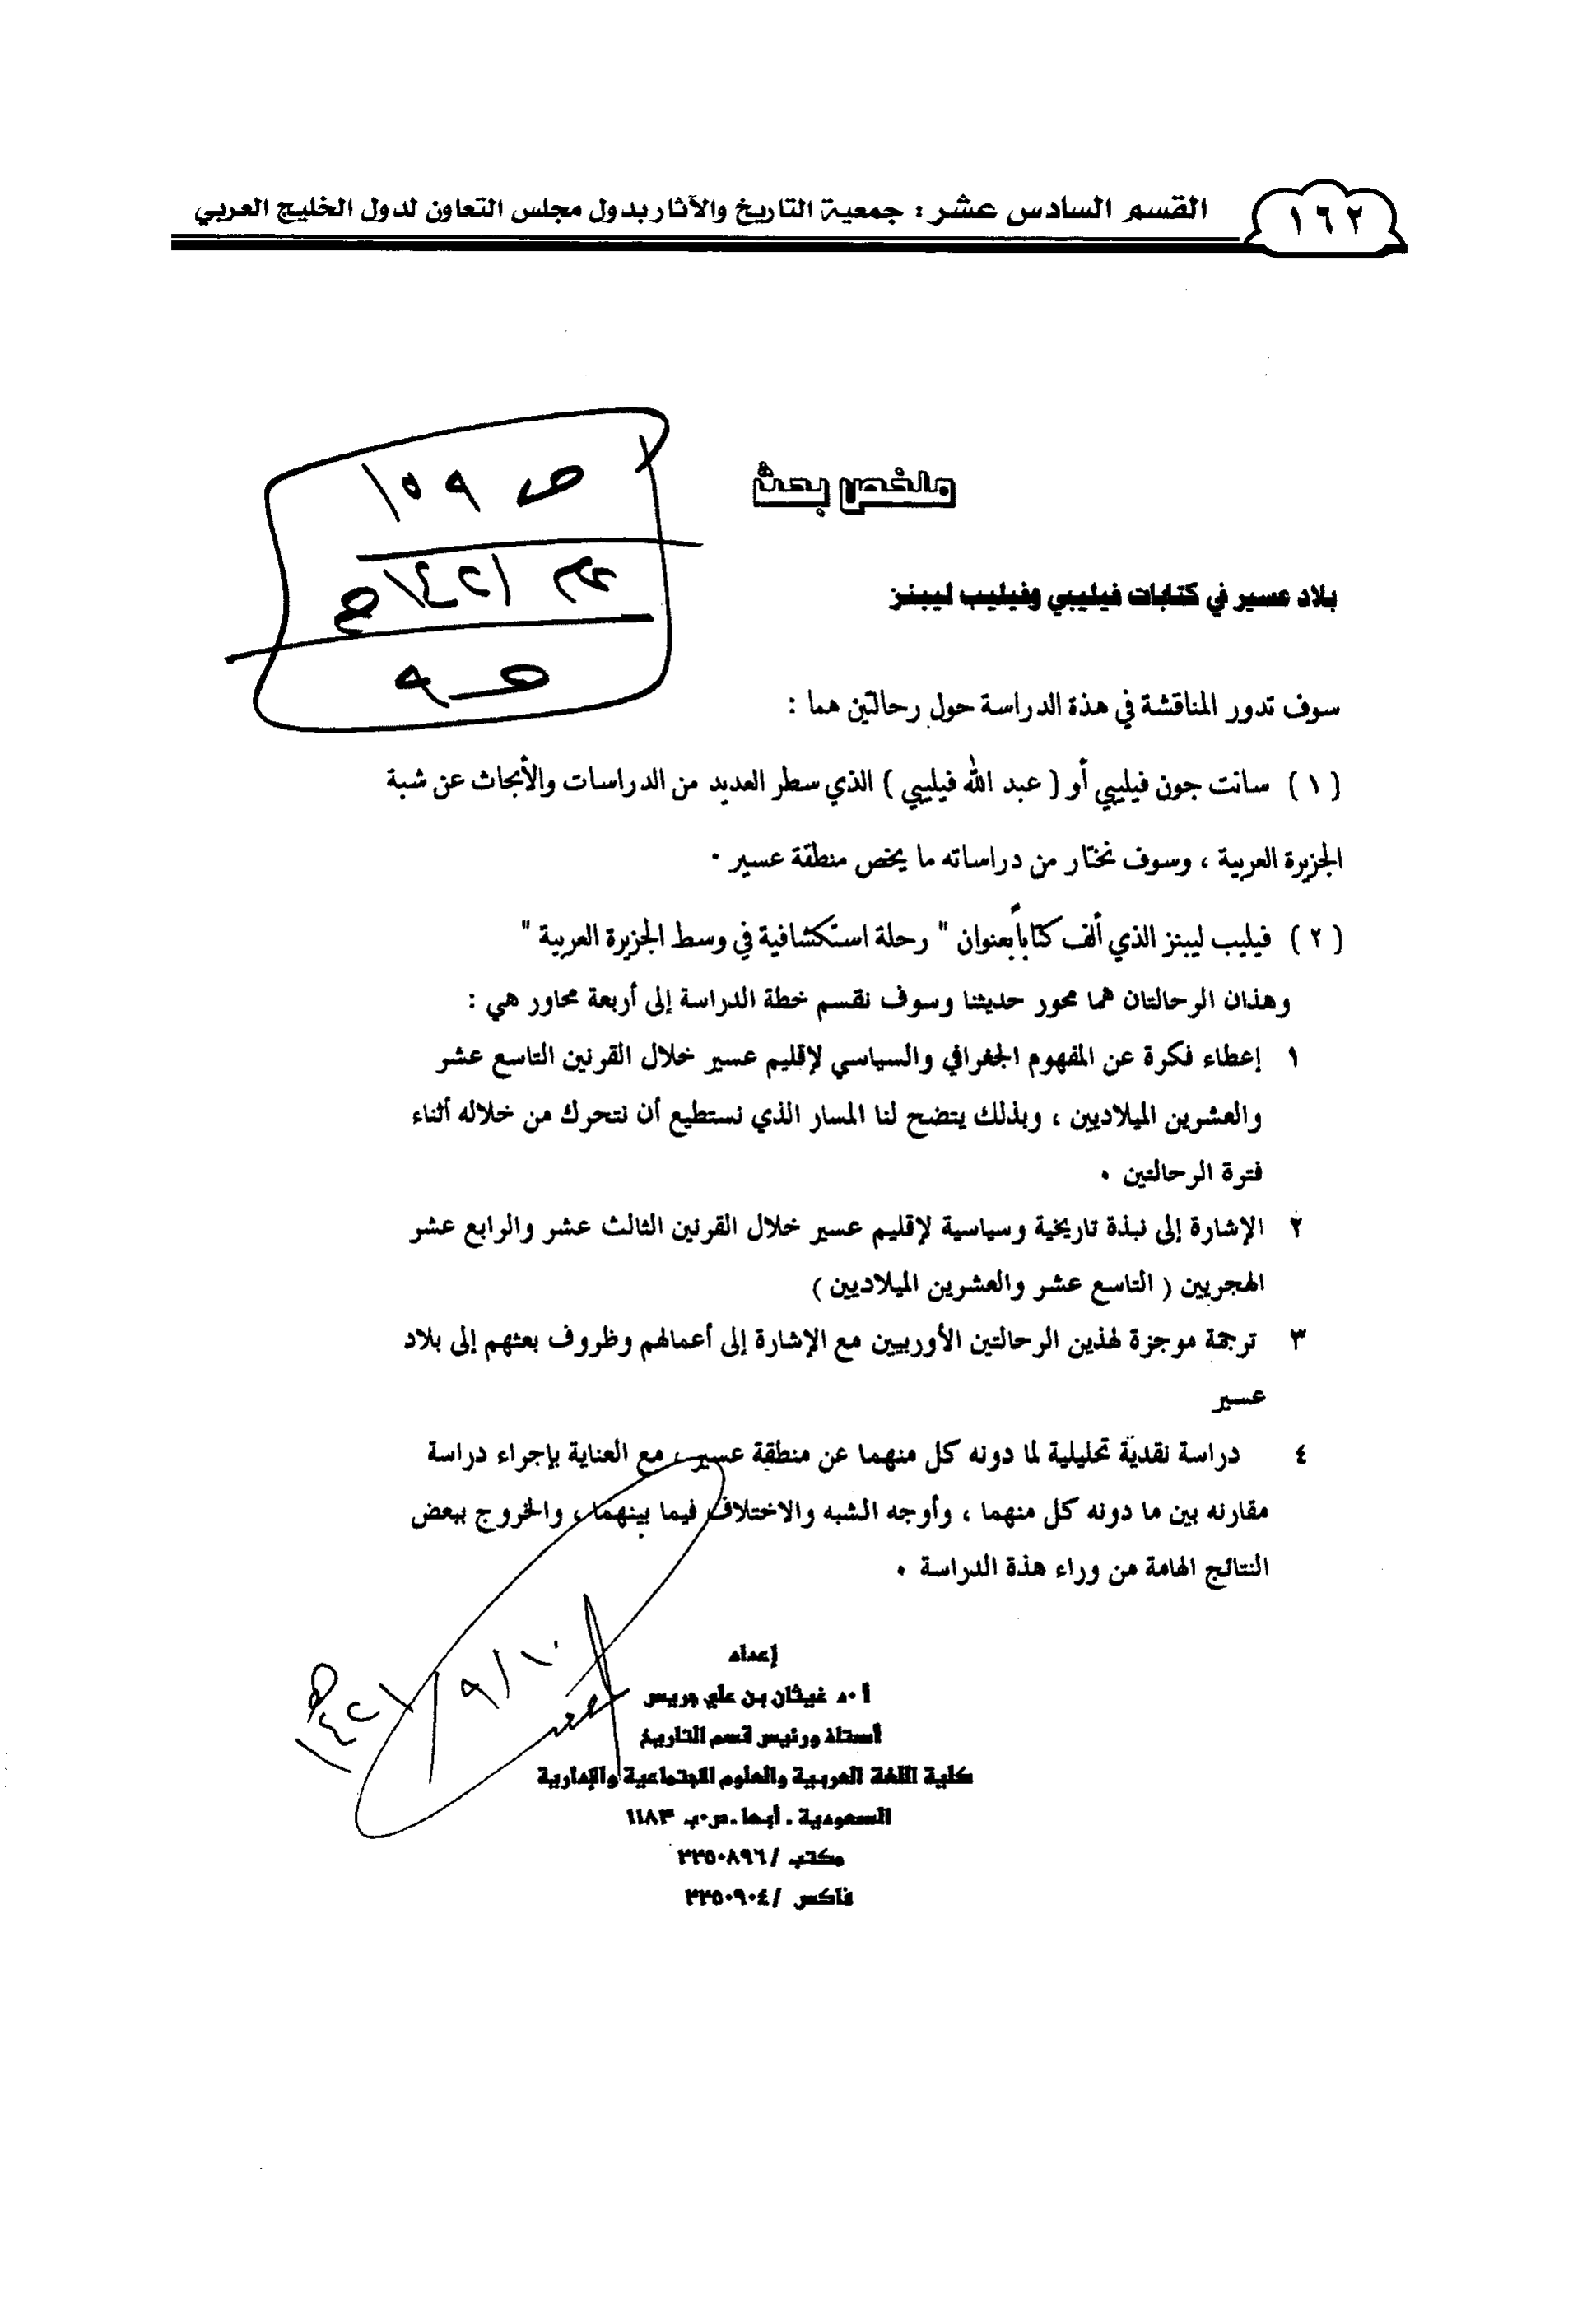 ١٦٢
القسم السادس عشر : جمعية التاريخ والآثار بدول مجلس التعاون لدول الخليج العربي
ص ١٥٩
عام ١٤٢١هـ
ملخص بحث
بلاد عسير في كتابات فيليبي وفيليب ليبنز
سوف تدور المناقشة في هذة الدراسة حول رحالتين هما :
( ١ ) سانت جون فيليبي أو ( عبد الله فيليبي ) الذي سطر العديد من الدراسات والأبحاث عن شبة
الجزيرة العربية ، وسوف نختار من دراساته ما يخص منطقة عسير ٠
( ٢ ) فيليب ليبنز الذي ألف كتاباً بعنوان " رحلة استكشافية في وسط الجزيرة العربية "
وهذان الرحالتان هما محور حديثنا وسوف نقسم خطة الدراسة إلى أربعة محاور هي :
١ إعطاء فكرة عن المفهوم الجغرافي والسياسي لإقليم عسير خلال القرنين التاسع عشر
والعشرين الميلاديين ، وبذلك يتضح لنا المسار الذي نستطيع أن نتحرك من خلاله أثناء
فترة الرحالتين ٠
٢ الإشارة إلى نبذة تاريخية وسياسية لإقليم عسير خلال القرنين الثالث عشر والرابع عشر
الهجريين ( التاسع عشر والعشرين الميلاديين )
٣ ترجمة موجزة لهذين الرحالتين الأوربيين مع الإشارة إلى أعمالهم وظروف بعثهم إلى بلاد
عسير
٤ دراسة نقدية تحليلية لما دونه كل منهما عن منطقة عسير ، مع العناية بإجراء دراسة
مقارنه بين ما دونه كل منهما ، وأوجه الشبه والاختلاف فيما بينهما ، والخروج ببعض
النتائج الهامة من وراء هذة الدراسة ٠
إعداد
أ ٠د غيثان بن علي جريس
أستاذ ورئيس قسم التاريخ
كلية اللغة العربية والعلوم الاجتماعية والإدارية
السعودية . أبها . ص٠ب ١١٨٣
مكتب / ٢٢٥٠٨٩٦
فاكس / ٢٢٥٠٩٠٤
١٠/٩/١٤٢١هـ